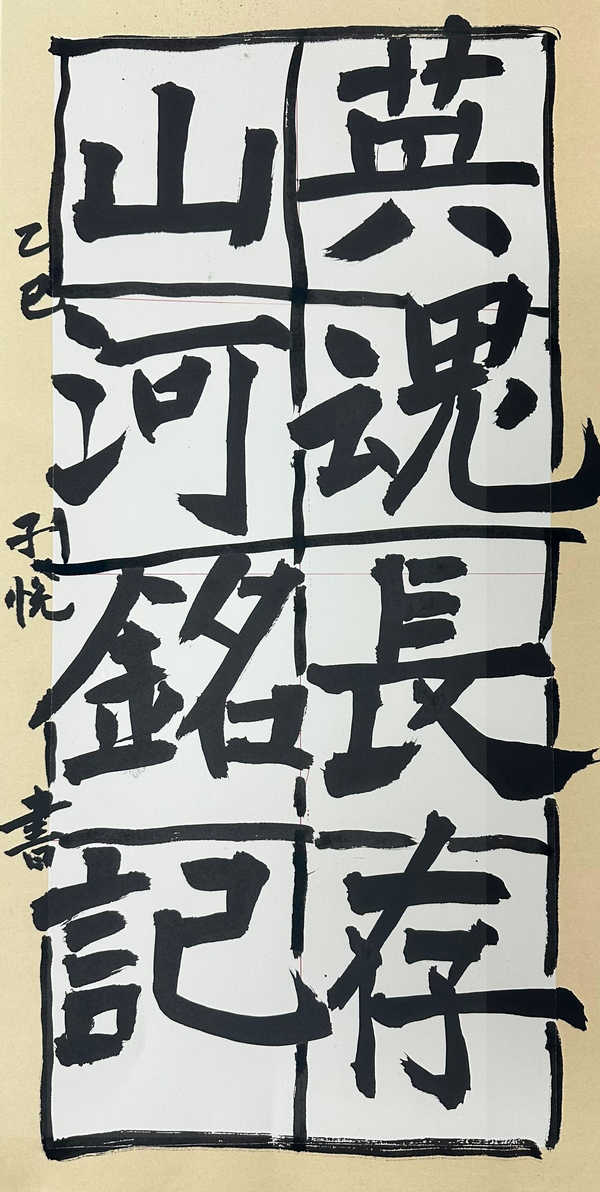 英魂長存
山河銘記
乙巳 子悦 書